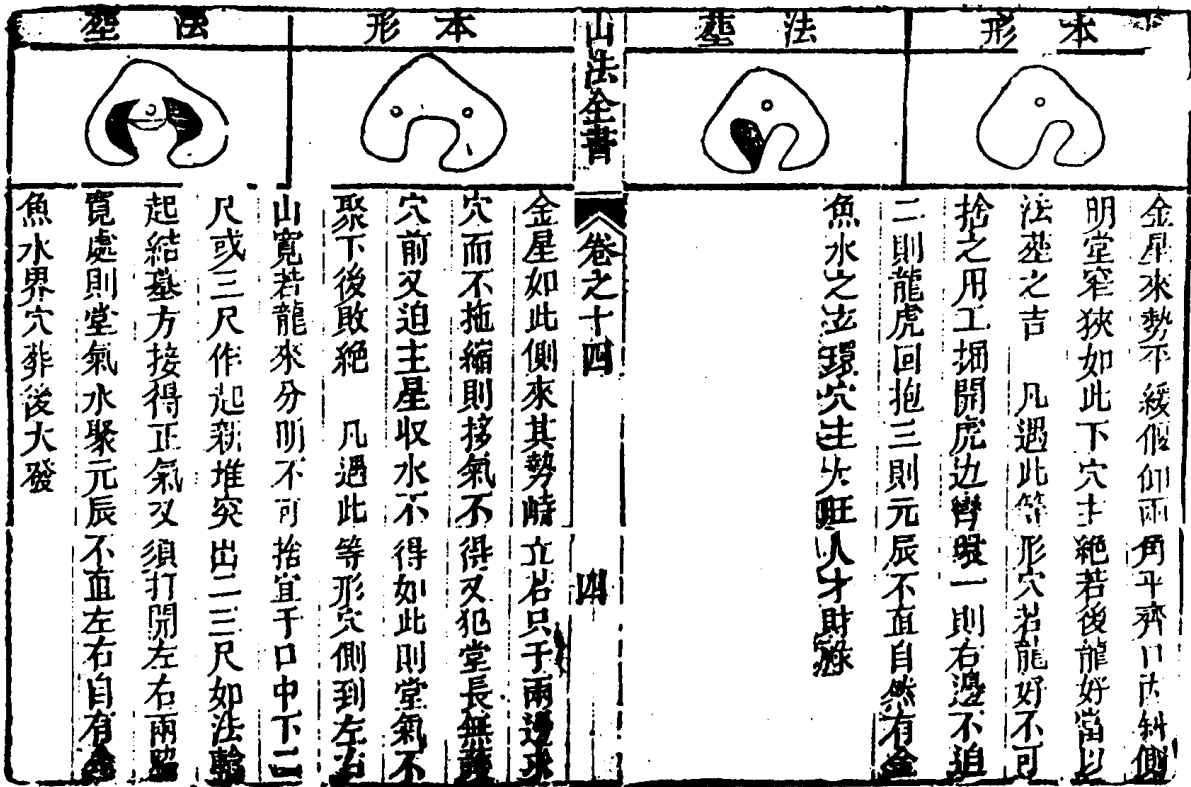 本形
法塟
金星來勢不緩偃仰兩角平齊口内斜側
明堂窄狹如此下穴主絶若後龍好當以
法塟之吉　凡遇此等形穴若龍好不可
捨之用工掘開虎边彎環一則右邊不迫
二則龍虎回抱三則元辰不直自然有金
魚水之立環穴主大旺人才財祿
山法全書
卷之十四
四
本形
法塟
金星如此側來其勢峙立若只于兩邊求
穴而不拖縮則移氣不得又犯堂長無
穴前又迫主星収水不得如此則堂氣不
聚下後敗絶　凡遇此等形穴側到左右
山寛若龍來分明不可捨宜于口中下二
尺或三尺作起新堆突出二三尺如法
起結墓方接得正氣又須打開左右兩
寛處則堂氣水聚元辰不直左右自有金
魚水界穴葬後大發